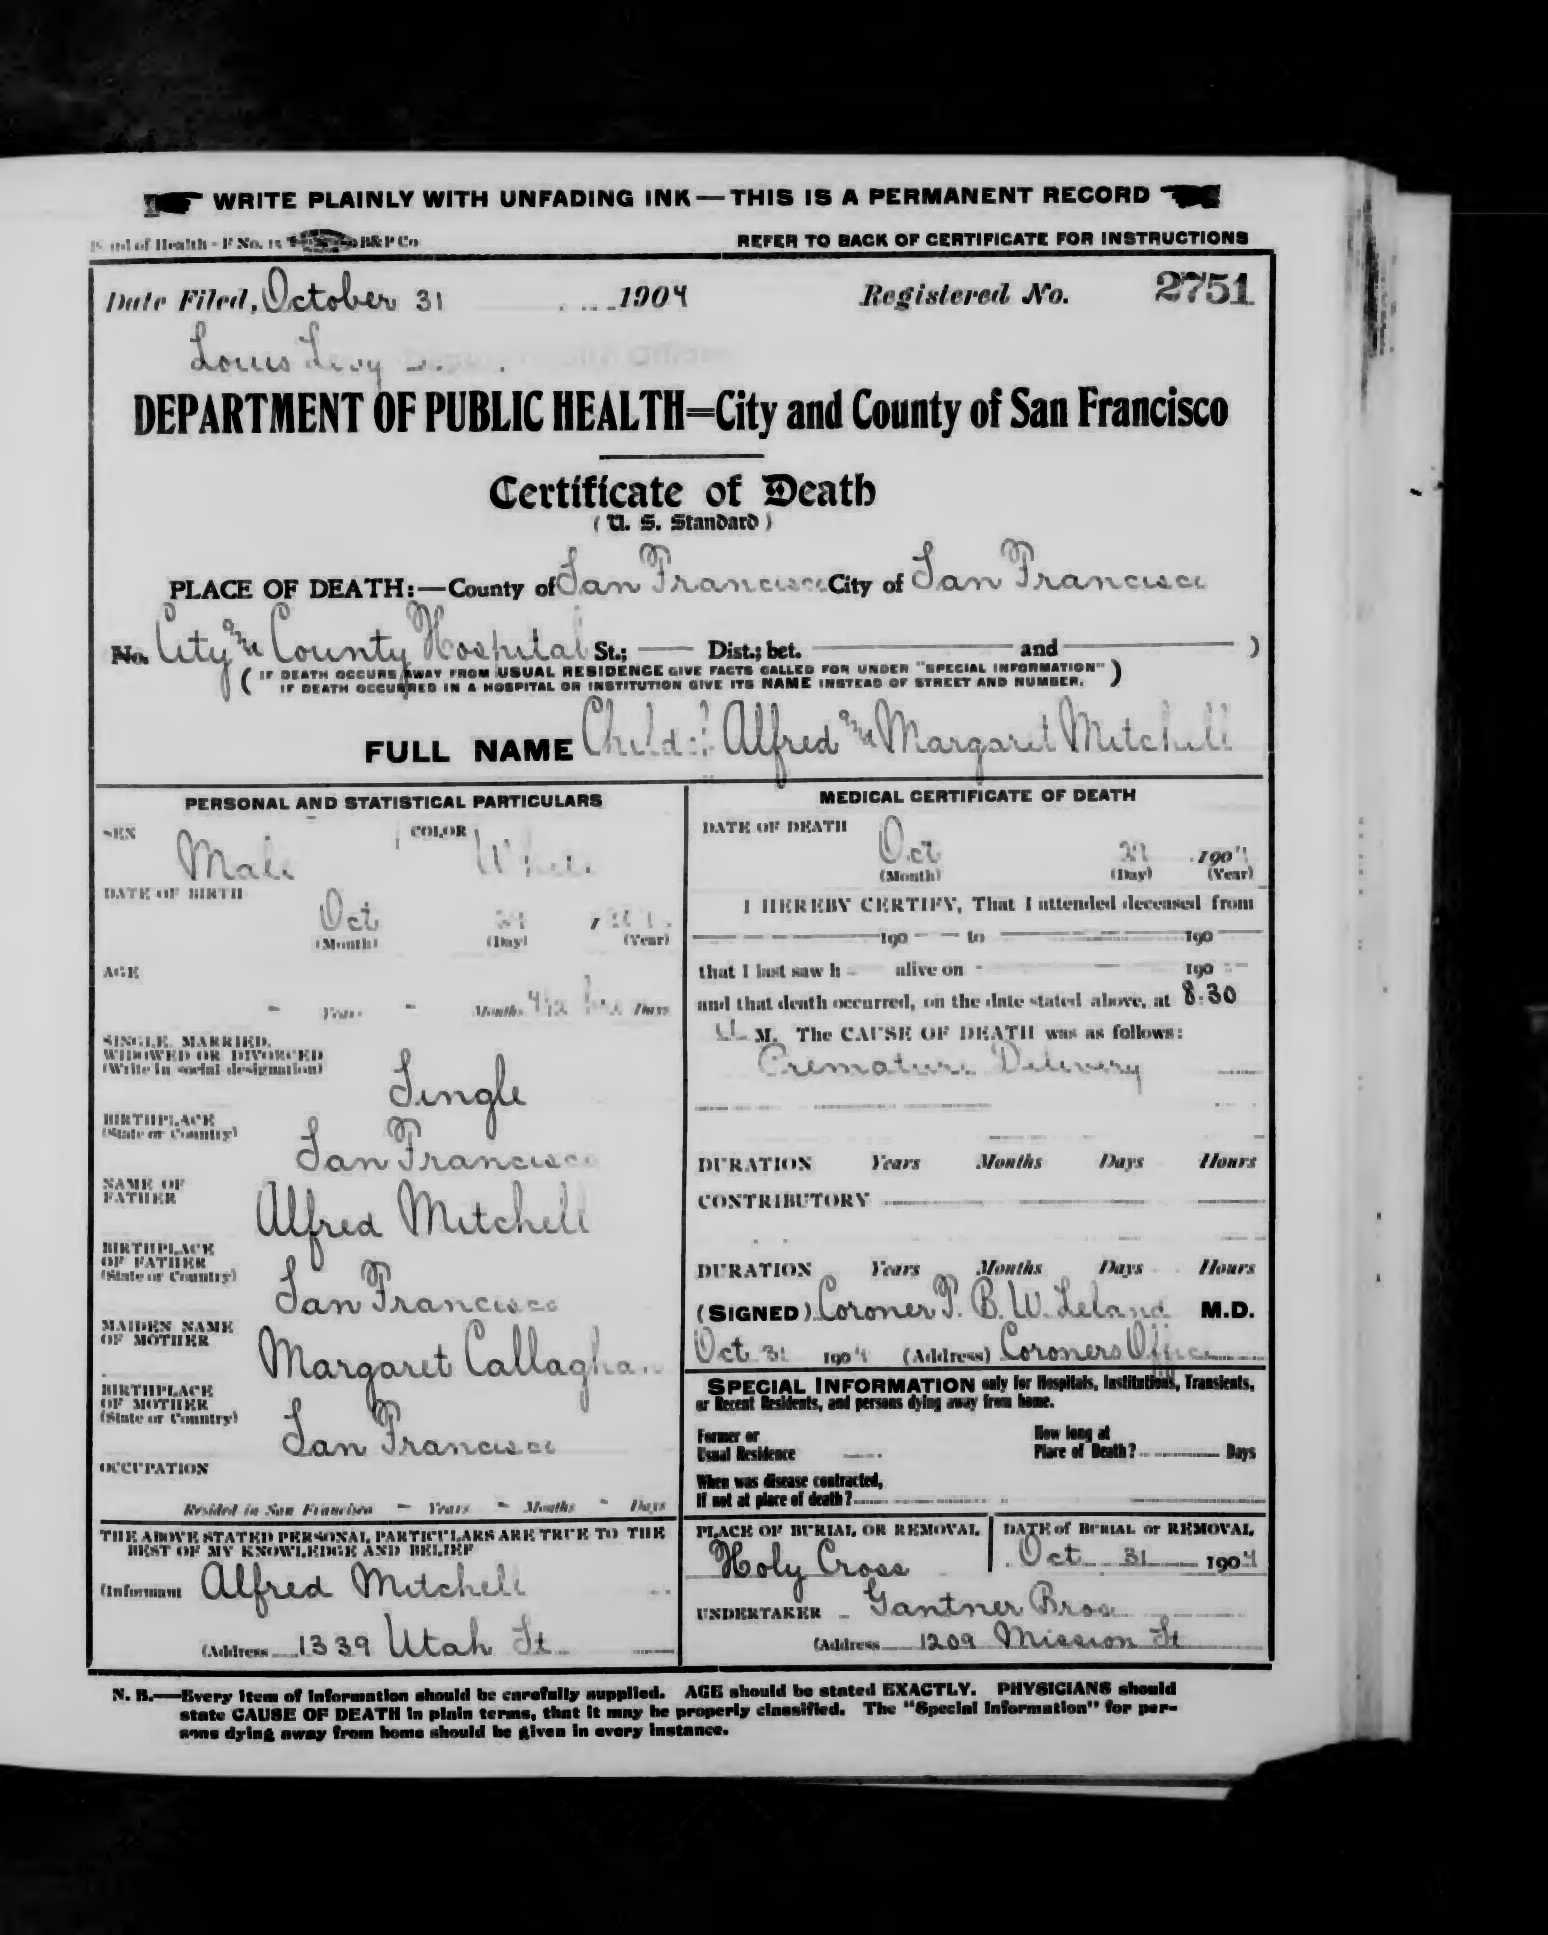 WRITE PLAINLY WITH UNFADING INK — THIS IS A PERMANENT RECORD
of Health - F No. 15 B&P Co
REFER TO BACK OF CERTIFICATE FOR INSTRUCTIONS
Date Filed, October 31 1904 Registered No. 2751
Louis Levy
DEPARTMENT OF PUBLIC HEALTH=City and County of San Francisco
Certificate of Death
(U. S. Standard)
PLACE OF DEATH:—County of San Francisco City of San Francisco
No. City and County Hospital St.; — Dist.; bet. — and — )
( IF DEATH OCCURS AWAY FROM USUAL RESIDENCE GIVE FACTS CALLED FOR UNDER "SPECIAL INFORMATION" )
IF DEATH OCCURRED IN A HOSPITAL OR INSTITUTION GIVE ITS NAME INSTEAD OF STREET AND NUMBER.
FULL NAME Child of Alfred and Margaret Mitchell
PERSONAL AND STATISTICAL PARTICULARS
SEX Male COLOR White
DATE OF BIRTH
Oct
(Month) (Day) (Year)
AGE
- Years - Months 4 1/2 hrs Days
SINGLE, MARRIED,
WIDOWED OR DIVORCED
(Write in social designation)
Single
BIRTHPLACE
(State or Country)
San Francisco
NAME OF
FATHER
Alfred Mitchell
BIRTHPLACE
OF FATHER
(State or Country)
San Francisco
MAIDEN NAME
OF MOTHER
Margaret Callaghan
BIRTHPLACE
OF MOTHER
(State or Country)
San Francisco
OCCUPATION
Resided in San Francisco - Years - Months - Days
THE ABOVE STATED PERSONAL PARTICULARS ARE TRUE TO THE
BEST OF MY KNOWLEDGE AND BELIEF
(Informant Alfred Mitchell
(Address 1339 Utah St
MEDICAL CERTIFICATE OF DEATH
DATE OF DEATH
Oct 1904
(Month) (Day) (Year)
I HEREBY CERTIFY, That I attended deceased from
190 to 190
that I last saw h alive on 190
and that death occurred, on the date stated above, at 8.30
M. The CAUSE OF DEATH was as follows:
Premature Delivery
DURATION Years Months Days Hours
CONTRIBUTORY
DURATION Years Months Days Hours
(SIGNED) Coroner T. B. W. Leland M.D.
Oct 31 1904 (Address) Coroners Office
SPECIAL INFORMATION only for Hospitals, Institutions, Transients,
or Recent Residents, and persons dying away from home.
Former or
Usual Residence
How long at
Place of Death? Days
When was disease contracted,
If not at place of death?
PLACE OF BURIAL OR REMOVAL
Holy Cross
DATE of BURIAL or REMOVAL
Oct 31 1904
UNDERTAKER Gantner Bros
(Address 1209 Mission St
N. B.—Every item of information should be carefully supplied. AGE should be stated EXACTLY. PHYSICIANS should
state CAUSE OF DEATH in plain terms, that it may be properly classified. The "Special Information" for per-
sons dying away from home should be given in every instance.